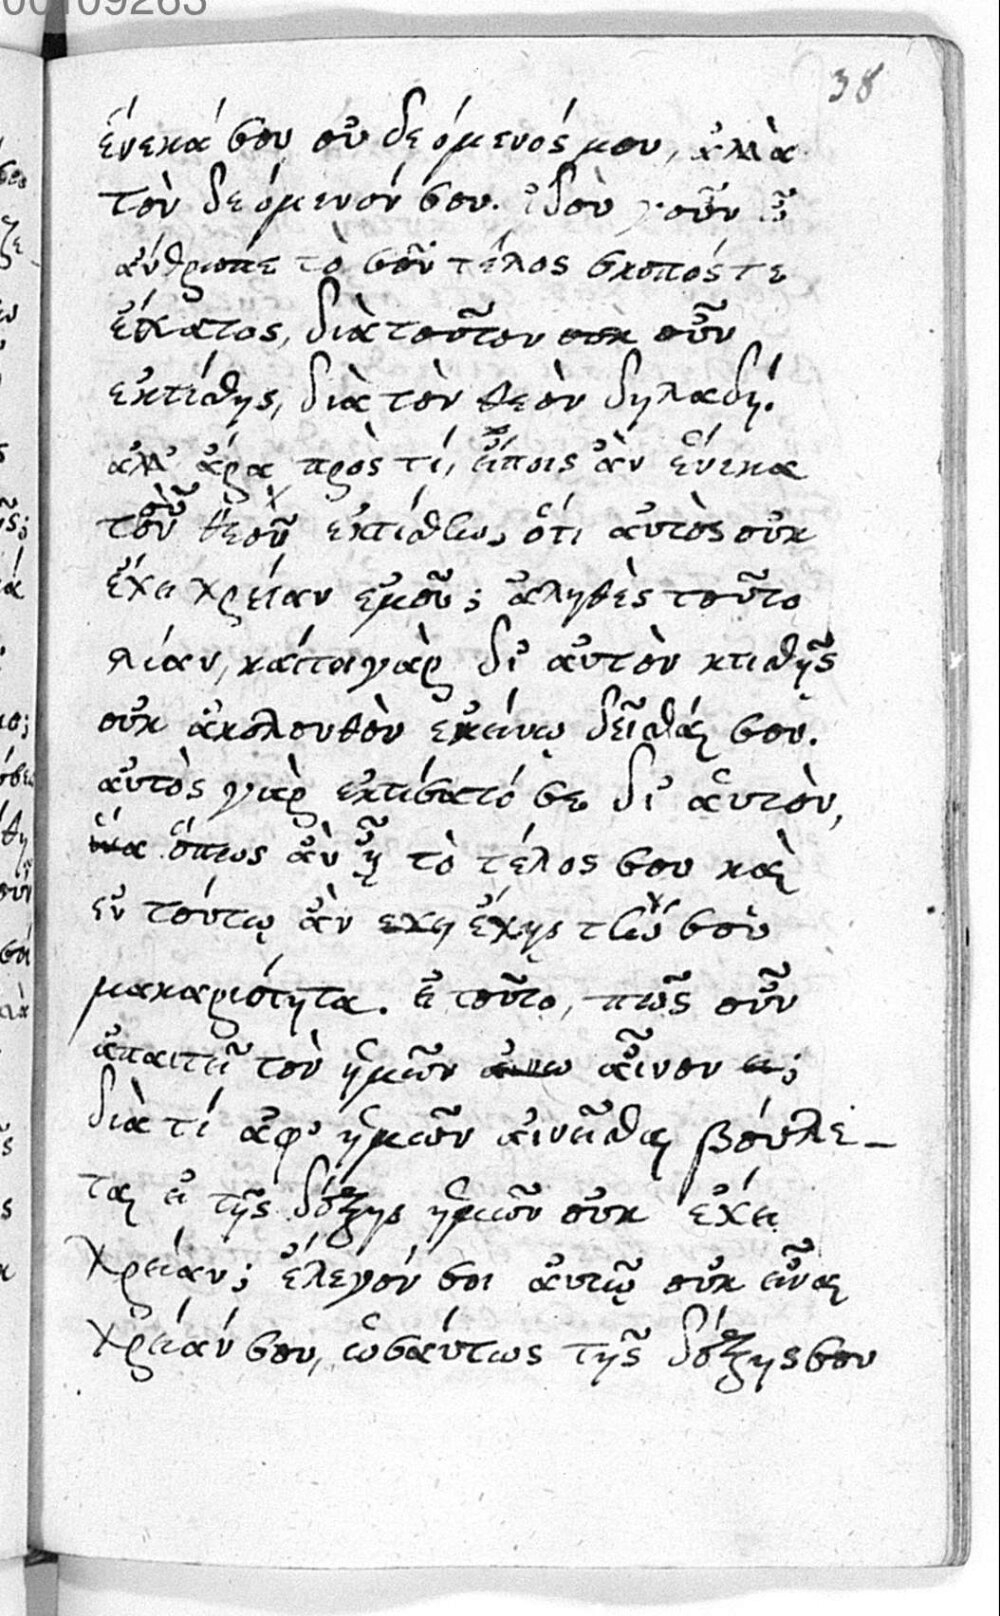 00109263
38
ἕνεκά σου οὐ δεόμενός μου, ἀλλὰ
τὸν δεόμενόν σου. ἰδοὺ γοῦν ὦ
ἄνθρωπε τὸ σὸν τέλος σκοπός τε
ἔσχατος, διὰ τοῦτον οὖν
ἐκτίσθης, διὰ τὸν θεὸν δηλαδή.
ἀλλ' ἆρα πρὸς τί, εἴποις ἂν ἕνεκα
τοῦ θεοῦ ἐκτίσθην, ὅτι αὐτὸς οὐκ
ἔχει χρείαν ἐμοῦ; ἀληθὲς τοῦτο
λίαν, κάιτοι γὰρ δι' αὐτὸν κτισθῇς
οὐκ ἀκόλουθον ἐκείνῳ δεῖσθαί σου.
αὐτὸς γὰρ ἐκτίσατό σε δι' ἁυτὸν,
ἵνα ὅπως ἂν ᾖ τὸ τέλος σου καὶ
ἐν τούτῳ ἂν εχη ἔχῃς τὴν σοῦ
μακαριότητα. εἰ τοῦτο, πῶς οὖν
ἀπαιτεῖ τὸν ἡμῶν αἶνον;
διὰ τί ἀφ' ἡμῶν αἰνεῖσθαι βούλε-
ται εἰ τῆς δόξης ἡμῶν οὐκ ἔχει
χρείαν; ἔλεγόν σοι αὐτῷ οὐκ εἶναι
χρείαν σου, ὡσάυτως τῆς δόξης σου